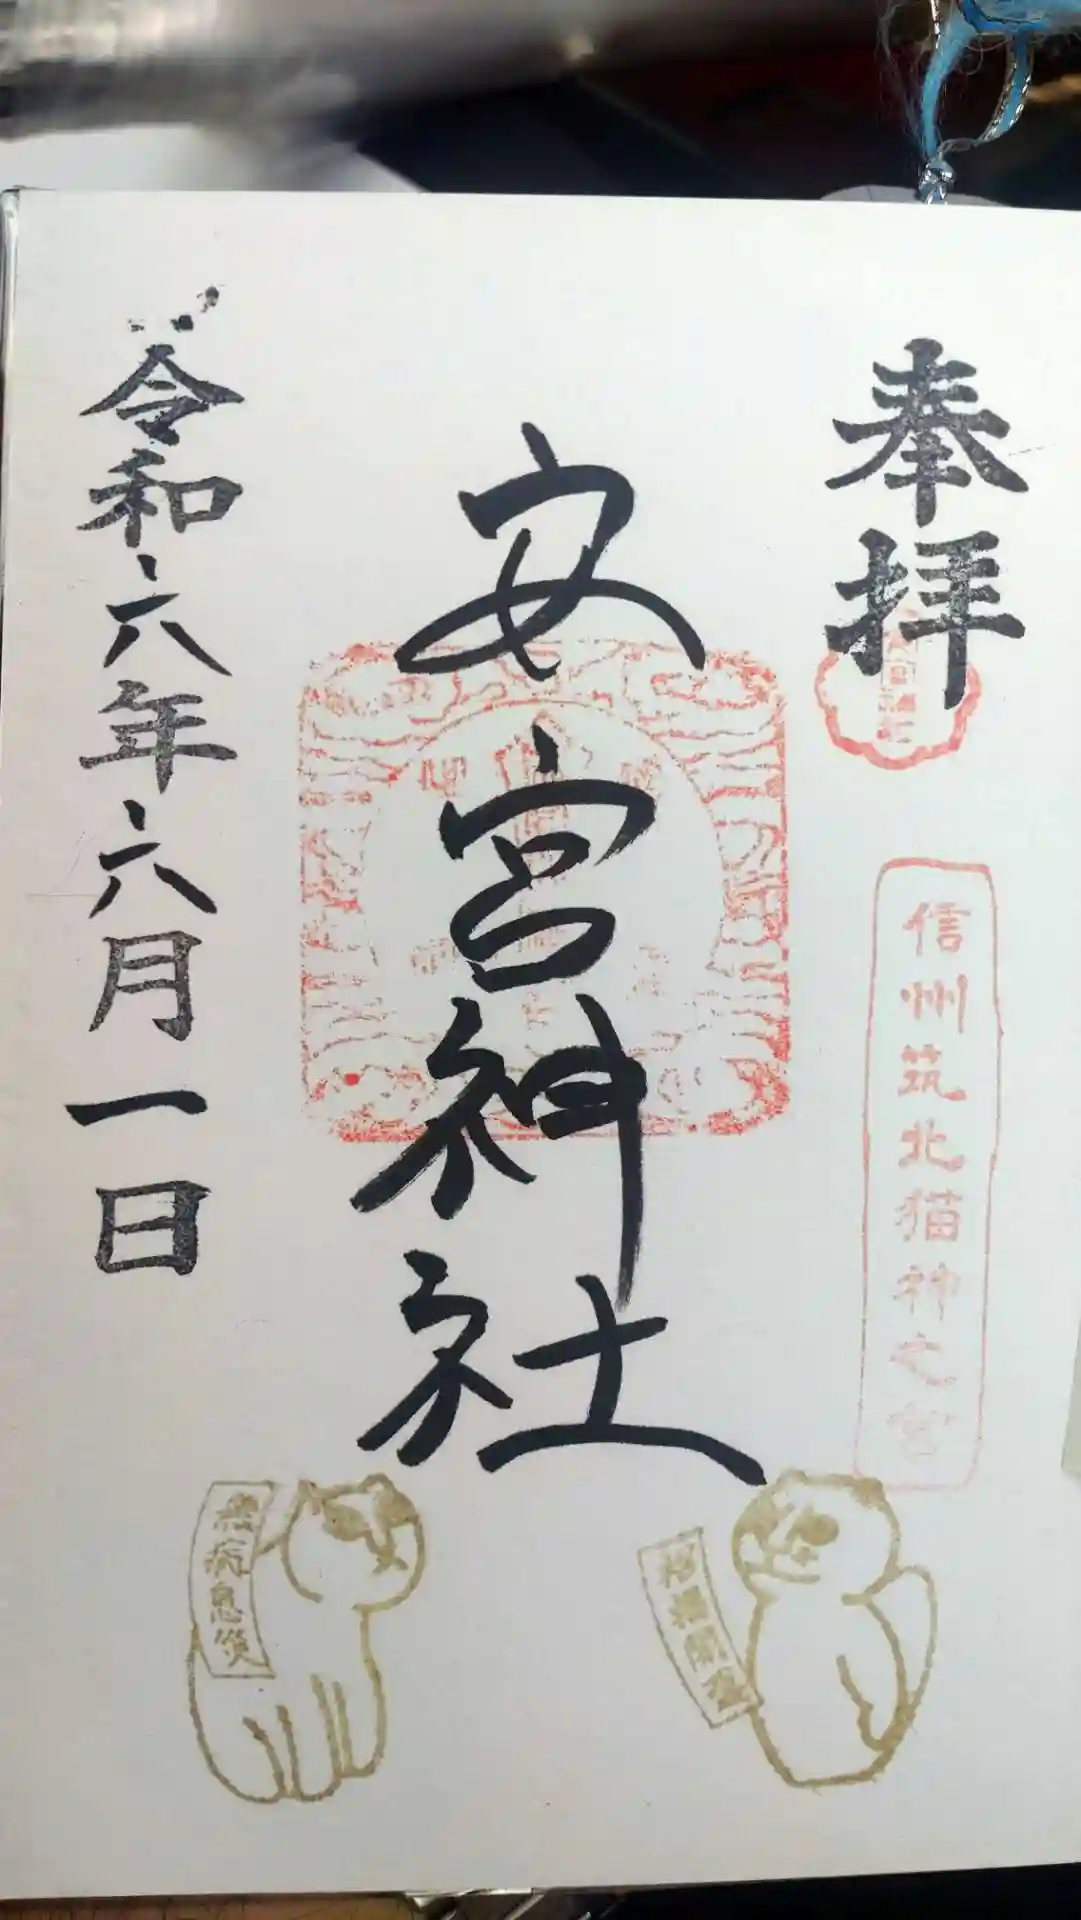 奉拝
信州筑北猫神之宮
安宮神社
令和六年六月一日
無病息災